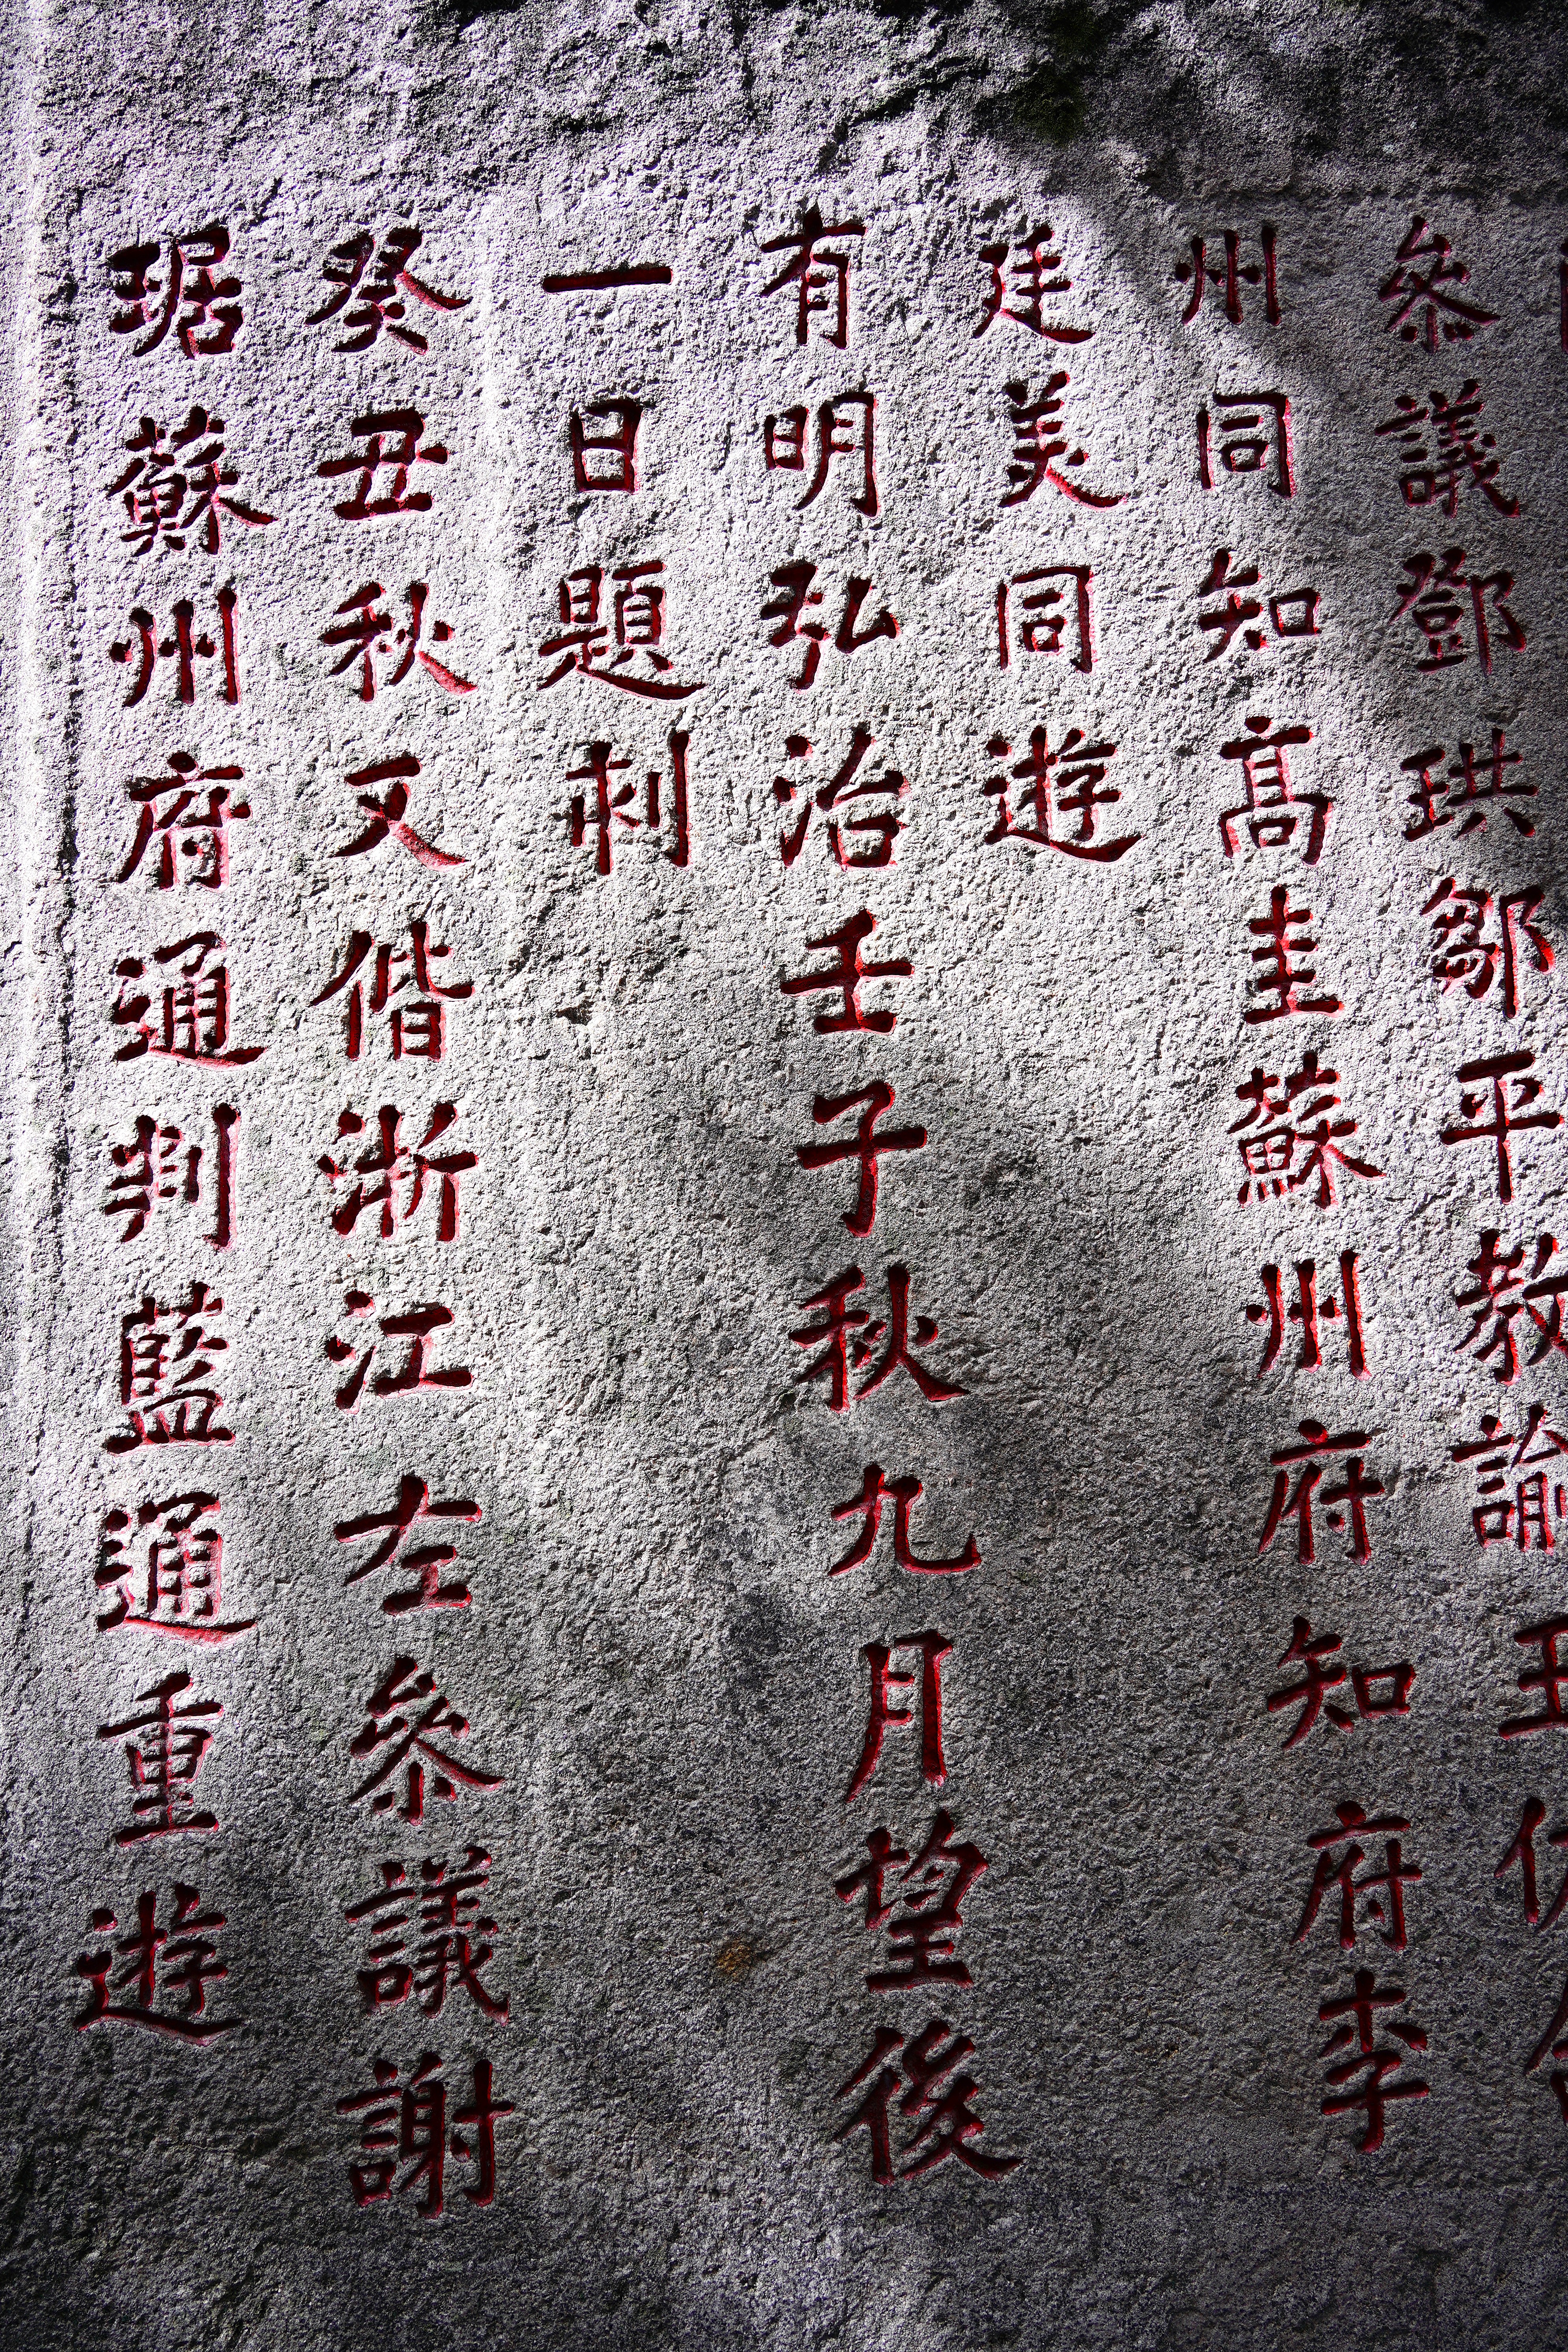 參議鄧珙鄒平教諭
州同知高圭蘇州府知府李
廷美同遊
有明弘治壬子秋九月望後
一日題刻
癸丑秋又偕浙江左參議謝
琚蘇州府通判藍通重遊